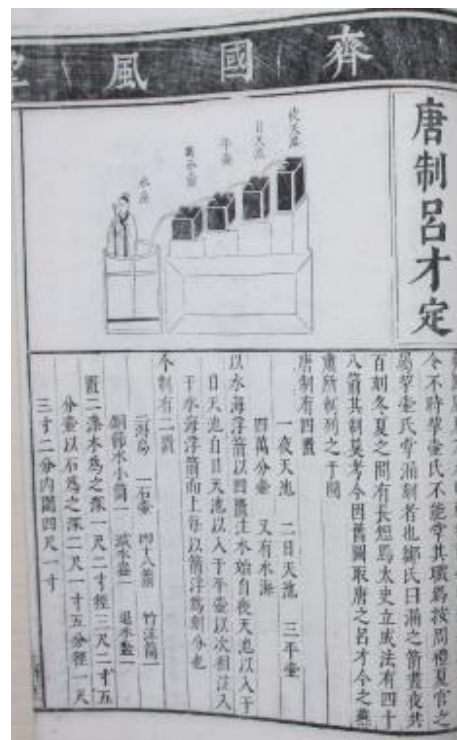 齊國風
唐制呂才定
夜天池
日天池
平壺
萬分壺
水海
令不時挈壺氏不能掌其職焉按周禮夏官之
屬挈壺氏掌漏刻者也鄭氏曰漏之箭晝夜共
百刻冬夏之間有長短焉太史立成法有四十
八箭其制莫考今因舊圖取唐之呂才今之燕
肅所規列之于圖
唐制有四匱
一夜天池 二日天池 三平壺
四萬分壺 又有水海
以水海浮箭以四匱注水始自夜天池以入于
日天池自日天池以入于平壺以次相注入
于水海浮箭而上每以箭浮為刻分也
今制有二匱
一石壺 四十八箭 竹注筒一
銅節水小筒一 減水盎一 退水盤一
置二漆木為之深一尺二寸徑三尺二寸五
分壺以石為之深二尺一寸五分徑一尺
三寸二分內圍四尺一寸